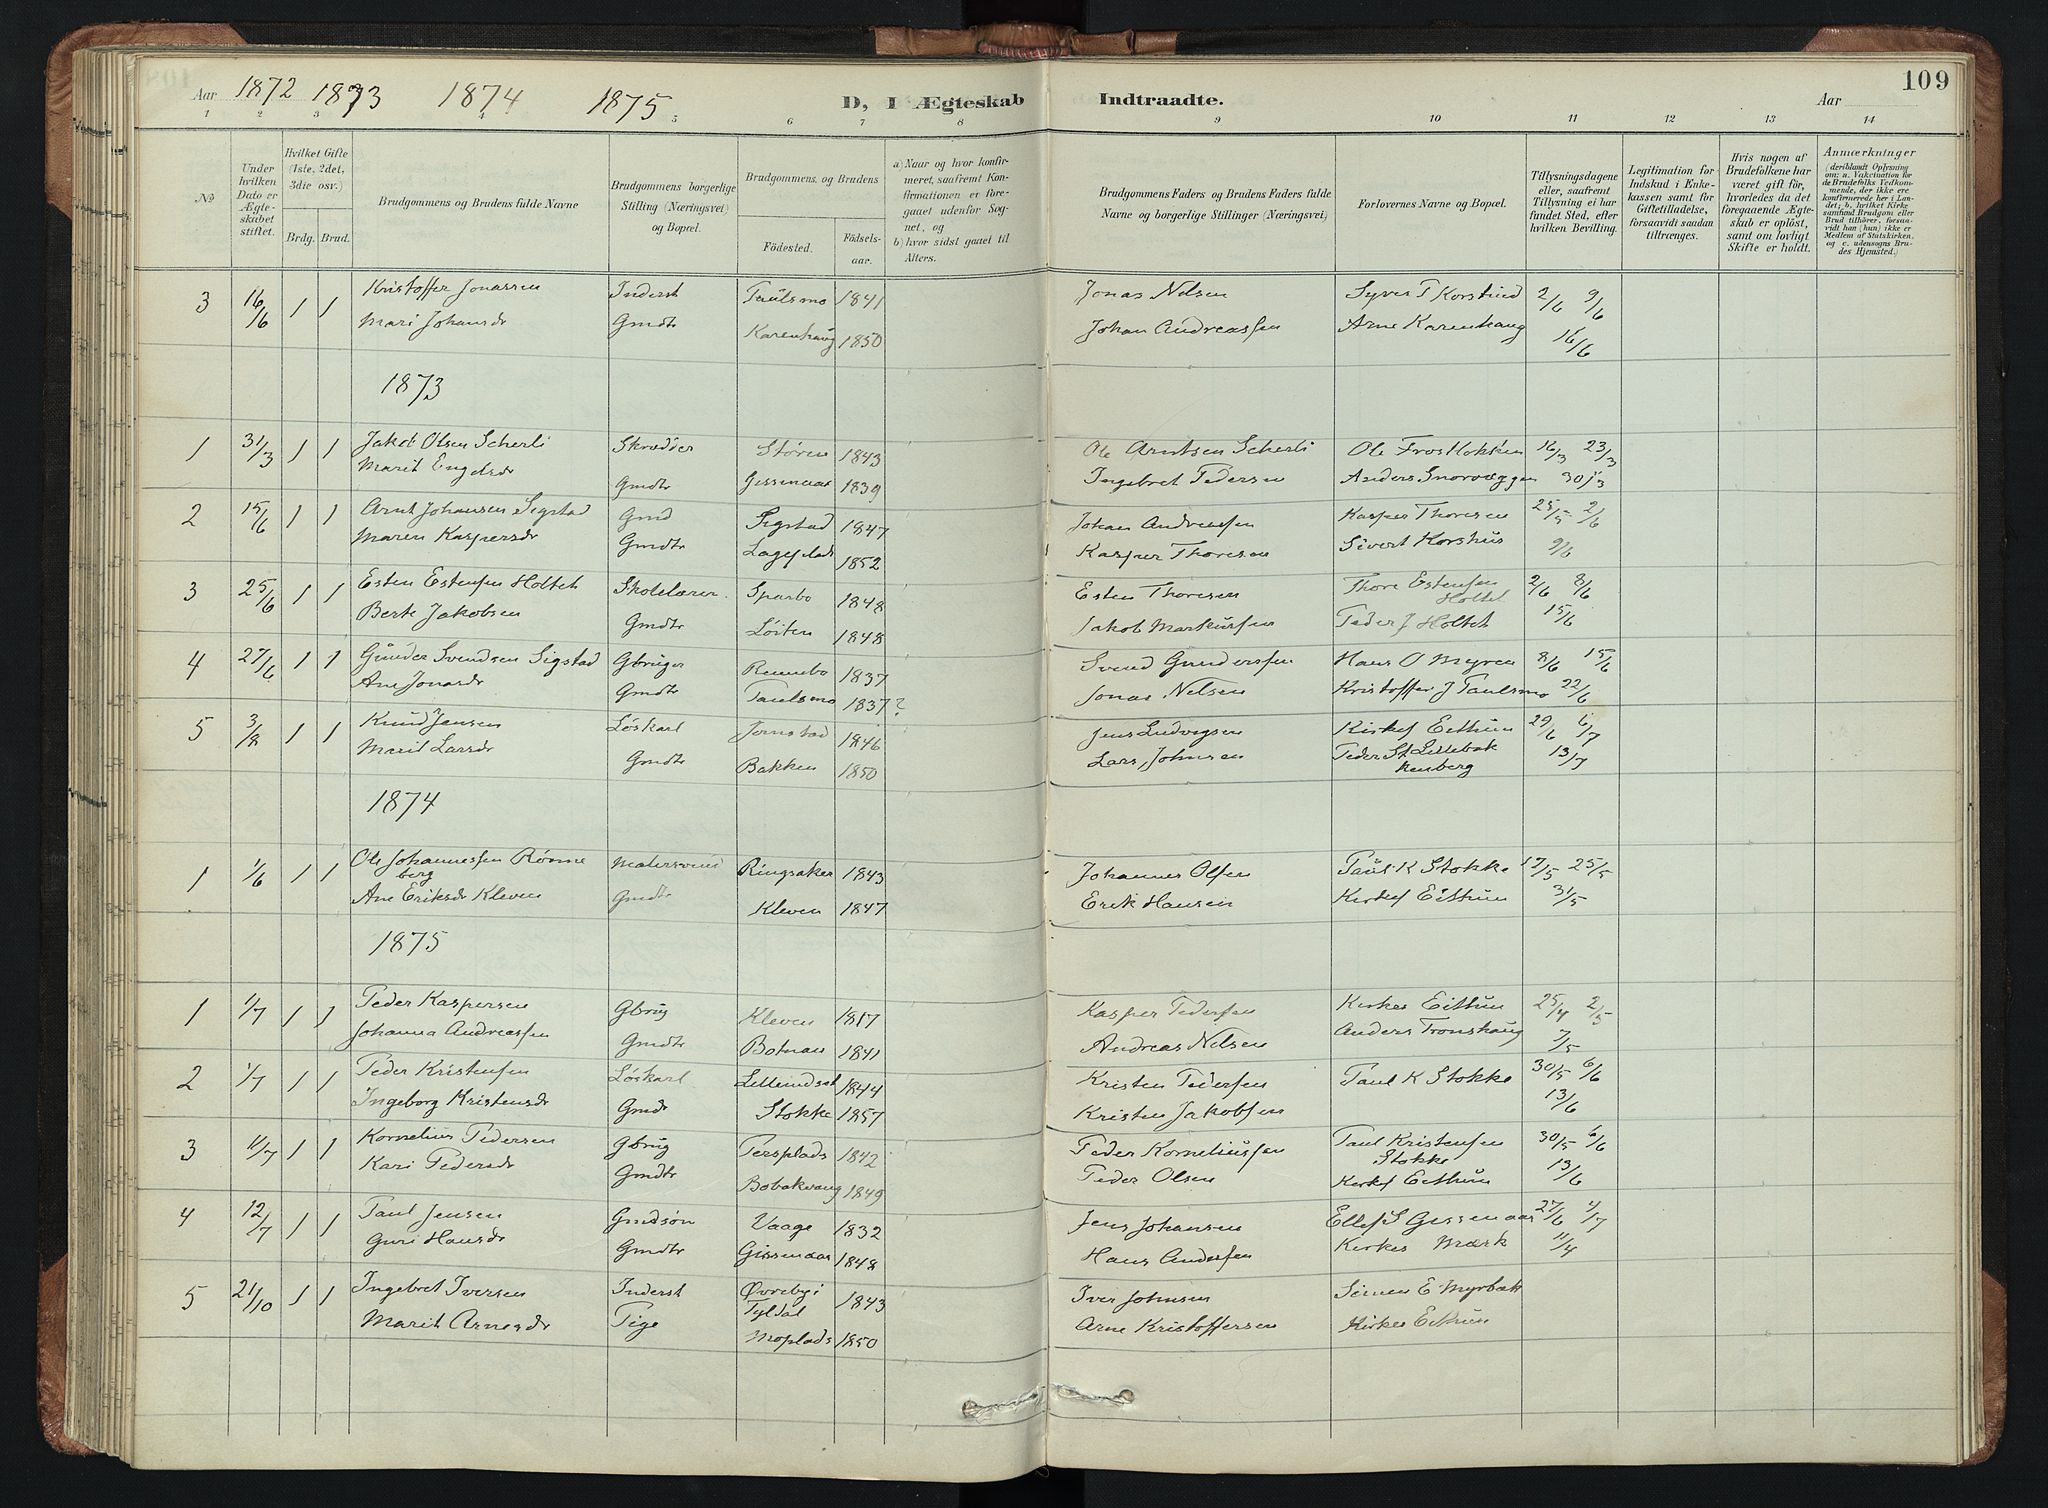 109
Aar 1872 1873 1874 1875 D, I Ægteskab Indtraadte. Aar
1 2 3 4 5 6 7 8 9 10 11 12 13 14
№
Under hvilken Dato er Ægteskabet stiftet.
Hvilket Gifte (1ste, 2det, 3die osv.)
Brdg. Brud.
Brudgommens og Brudens fulde Navne
Brudgommens borgerlige Stilling (Næringsvei) og Bopæl.
Brudgommens og Brudens
Fødested. Fødselsaar.
a) Naar og hvor konfirmeret, saafremt Konfirmationen er foregaaet udenfor Sognet, og
b) hvor sidst gaaet til Alters.
Brudgommens Faders og Brudens Faders fulde Navne og borgerlige Stillinger (Næringsvei)
Forlovernes Navne og Bopæl.
Tillysningsdagene eller, saafremt Tillysning ei har fundet Sted, efter hvilken Bevilling.
Legitimation for Indskud i Enkekassen samt for Giftetilladelse, forsaavidt saadan tiltrænges.
Hvis nogen af Brudefolkene har været gift før, hvorledes da det foregaaende Ægteskab er opløst, samt om lovligt Skifte er holdt.
Anmærkninger
(deriblandt Oplysning om: a. Vakcination for de Brudefolks Vedkommende, der ikke ere konfirmerede her i Landet; b. hvilket Kirkesamfund Brudgom eller Brud tilhører, forsaavidt han (hun) ikke er Medlem af Statskirken, og c. udensogns Brudes Hjemsted.)
3 16/6 1 1 Kristoffer Jonassen Inderst Paulsmo 1841 Jonas Nilsen Syver P Korshud 2/6 9/6
Mari Johansdr Gmdtr Karenhaug 1850 Johan Andreassen Arne Karenhaug 16/6
1873
1 31/3 1 1 Jakob Olsen Scherli Skrædder Støren 1843 Ole Arntsen Scherli Ole Froshokken 16/3 23/3
Marit Engelsdr Gmdtr Gissenaas 1839 Ingebret Pedersen Anders Snoreggen 30/3
2 15/6 1 1 Arnt Johansen Sigstad Gmd Sigstad 1847 Johan Andreassen Kasper Thoresen 25/5 2/6
Maren Kaspersdr Gmdtr Lageplads 1852 Kasper Thoresen Sivert Korshus 9/6
3 25/6 1 1 Esten Estensen Holtet Skolelærer Sparbo 1848 Esten Thoresen Thore Estensen Holtet 2/6 8/6
Berte Jakobsen Gmdtr Løiten 1848 Jakob Markussen Peder J Holtet 15/6
4 27/6 1 1 Gunder Svendsen Sigstad Gbruger Rennebo 1837 Svend Gundersen Hans O Myren 8/6 15/6
Ane Jonasdr Gmdtr Paulsmo 1837? Jonas Nilsen Kristoffer J Paulsmo 22/6
5 3/8 1 1 Knud Jensen Løskarl Jornstad 1846 Jens Ludvigsen Kirkes Eithun 29/6 6/7
Marit Larsdr Gmdtr Bakken 1850 Lars Johnsen Peder St Lillebakkenberg 13/7
1874
1 1/6 1 1 Ole Johannessen Rønneberg Malersvend Ringsaker 1843 Johannes Olsen Paul K Stokke 17/5 25/5
Ane Eriksdr Kleven Gmdtr Kleven 1847 Erik Hansen Kirkes Eithun 31/5
1875
1 1/7 1 1 Peder Kaspersen Gbrug Kleven 1817 Kasper Pedersen Kirkes Eithun 25/4 2/5
Johanna Andreassen Gmdtr Botnan 1841 Andreas Nilsen Anders Tronshaug 7/5
2 1/7 1 1 Peder Kristensen Løskarl 1844 Kristen Pedersen Paul K Stokke 30/5 6/6
Ingeborg Kristensdr Gmdr Stokke 1857 Kristen Jakobsen 13/6
3 11/7 1 1 Kornelius Pedersen Gbrug Persplads 1842 Peder Korneliussen Paul Kristensen Stokke 30/5 6/6
Kari Pedersdr Gmdtr Bobakvang 1849 Peder Olsen Kirkes Eithun 13/6
4 12/7 1 1 Paul Jensen Gmdsøn Vaage 1832 Jens Johansen Ellef S Gissenaas 27/6 4/7
Guri Hansdr Gmdtr Gissenaas 1848 Hans Andersen Kirkes Mærk 11/4
5 21/10 1 1 Ingebret Iversen Inderst Øvrebygi Tyldal 1843 Iver Johnsen Simen E Myrbak
Marit Arnesdr Pige Moplads 1850 Arne Kristoffersen Kirkes Eithun